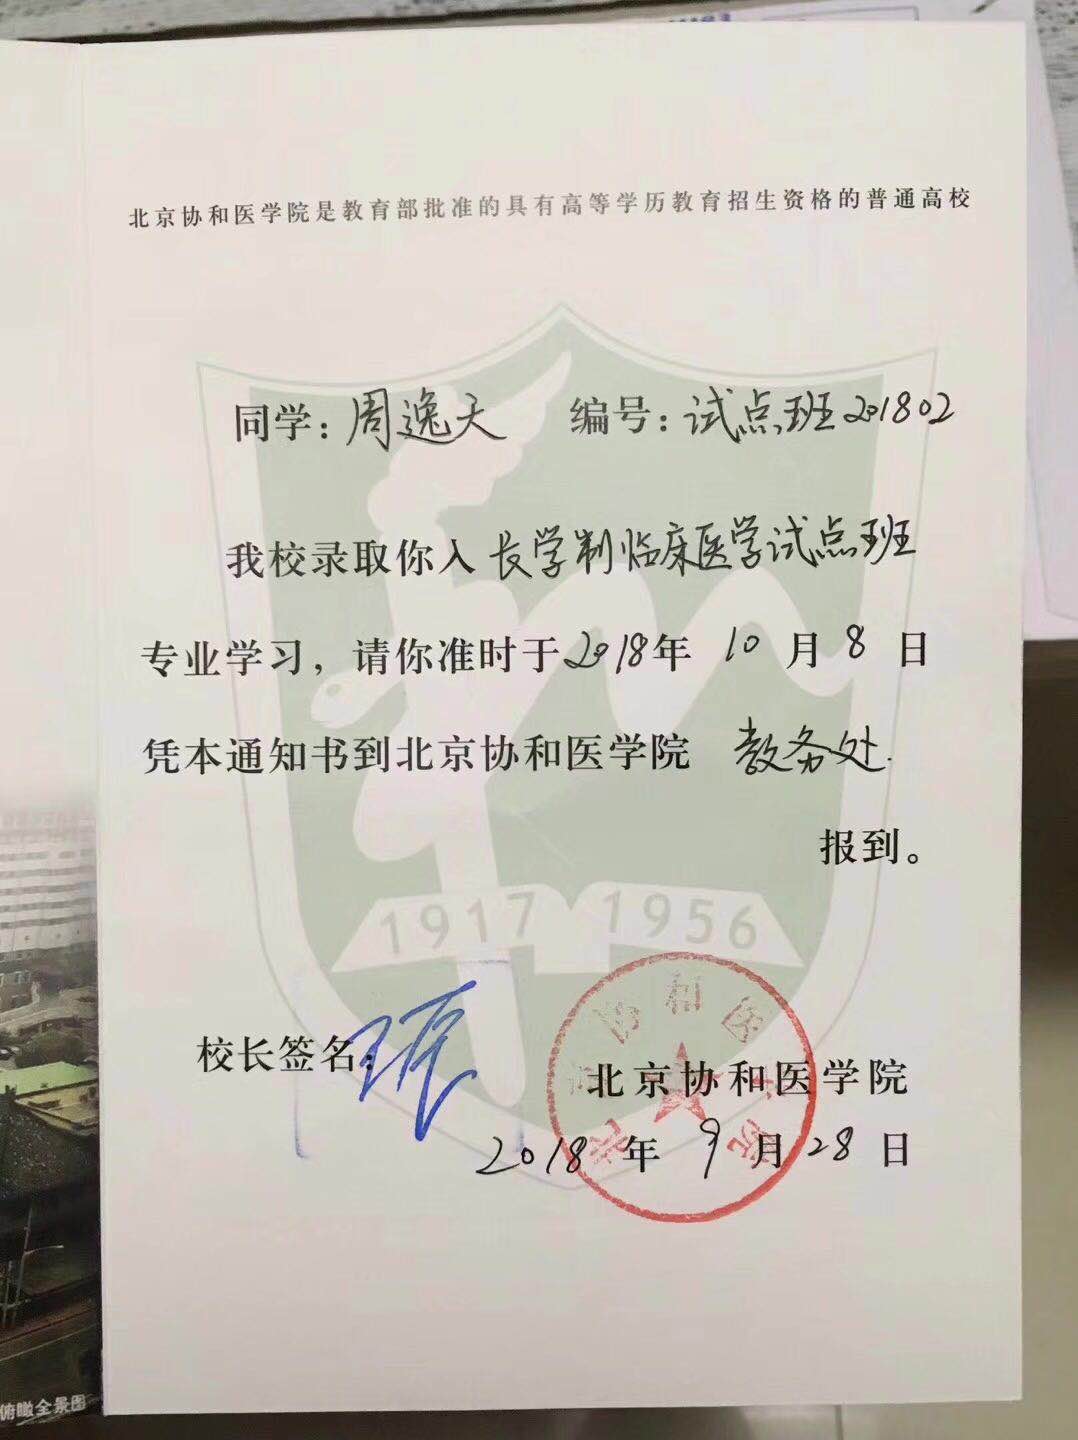 北京协和医学院是教育部批准的具有高等学历教育招生资格的普通高校
同学：周逸天 编号：试点班201802
我校录取你入 长学制临床医学试点班
专业学习，请你准时于2018年 10 月 8 日
凭本通知书到北京协和医学院 教务处
报到。
1917 1956
校长签名：
北京协和医学院
北京协和医学院
2018 年 9 月 28 日
俯瞰全景图